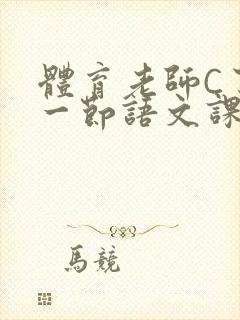 體育老師C
一節語文課
馬競